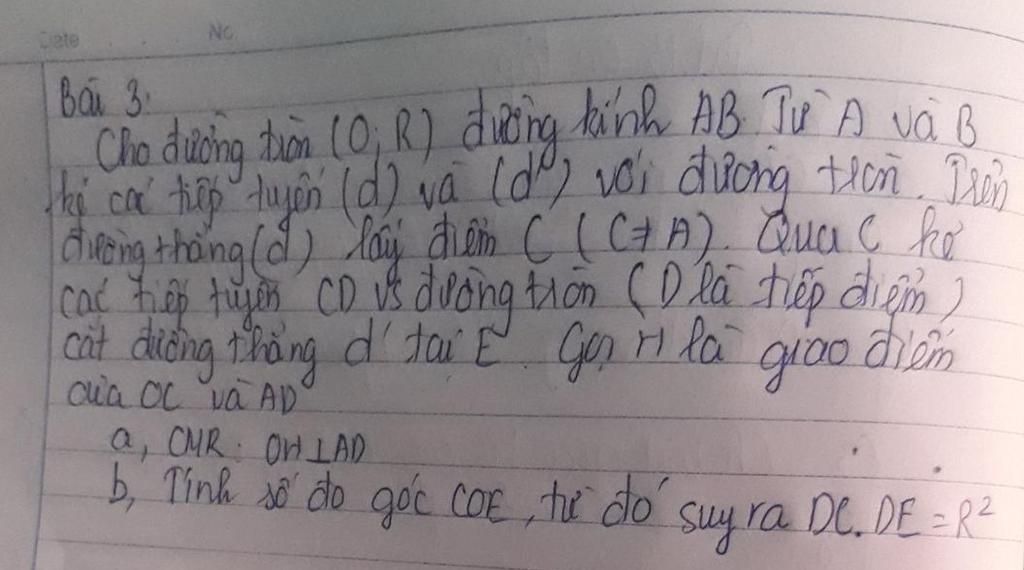 Date No.
Bài 3:
Cho đường tròn (O; R) đường kính AB. Từ A và B
kẻ các tiếp tuyến (d) và (d') với đường tròn. Trên
đường thẳng (d) lấy điểm C (C ≠ A). Qua C kẻ
các tiếp tuyến CD vs đường tròn (D là tiếp điểm)
cắt đường thẳng d' tại E. Gọi H là giao điểm
của OC và AD
a, CMR: OH ⊥ AD
b, Tính số đo góc COE, từ đó suy ra DC. DE = R²